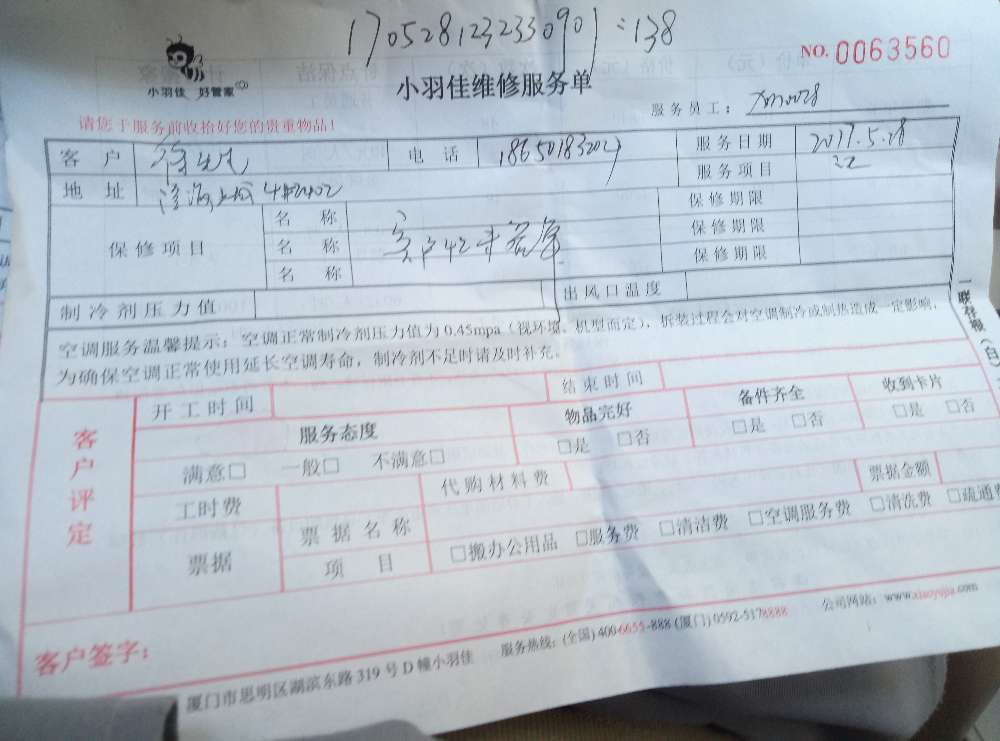 1705281232330901:138
NO. 0063560
小羽佳 好管家
小羽佳维修服务单
服务员工: xm0028
请您于服务前收拾好您的贵重物品!
客 户 电 话 服务日期 2017.5.28
服务项目
地 址 4#2402
保修项目 名 称 保修期限
名 称 保修期限
名 称 保修期限
制冷剂压力值 出风口温度
空调服务温馨提示:空调正常制冷剂压力值为0.45mpa(视环境、机型而定),拆装过程会对空调制冷或制热造成一定影响,
为确保空调正常使用延长空调寿命,制冷剂不足时请及时补充。
一联存根(白)
客户评定
开工时间 结束时间
服务态度 物品完好 备件齐全 收到卡片
满意□ 一般□ 不满意□ □是 □否 □是 □否 □是 □否
工时费 代购材料费
票据 票据名称 票据金额
项 目 □搬办公用品 □服务费 □清洁费 □空调服务费 □清洗费 □疏通费
客户签字:
厦门市思明区湖滨东路319号D幢小羽佳 服务热线:(全国)400-6655-888(厦门)0592-5178888 公司网站:www.xiaoyujia.com